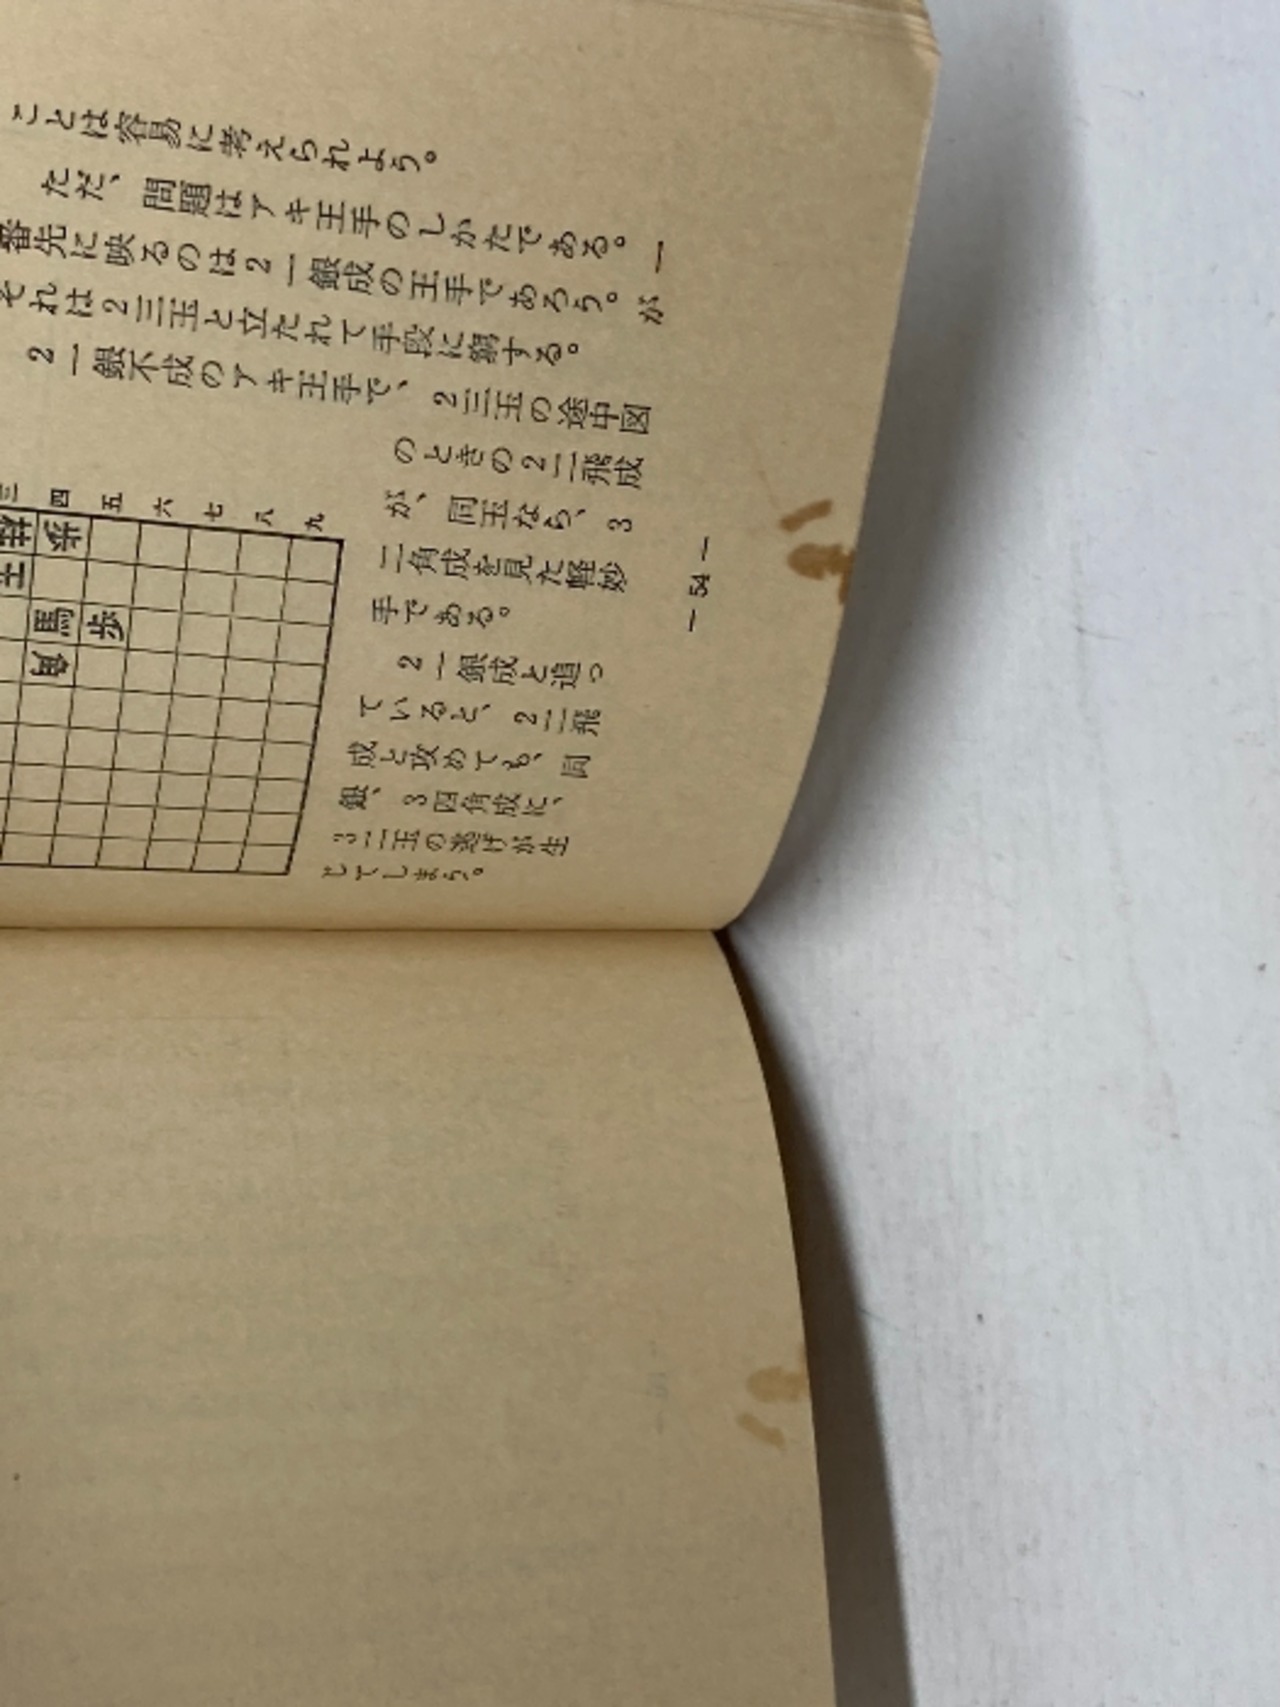 ことは容易に考えられよう。
ただ、問題はアキ王手のしかたである。一
番先に映るのは２一銀成の王手であろう。が
それは２三玉と立たれて手段に窮する。
２一銀不成のアキ王手で、２三玉の途中図
のときの２二飛成
が、同玉なら、３
二角成を見た軽妙
手である。
２一銀成と追っ
ていると、２二飛
成と攻めても、同
銀、３四角成に、
３二玉の逃げが生
じてしまう。
三 四 五 六 七 八 九
桂 歩
王
馬 歩
角
— 54 —